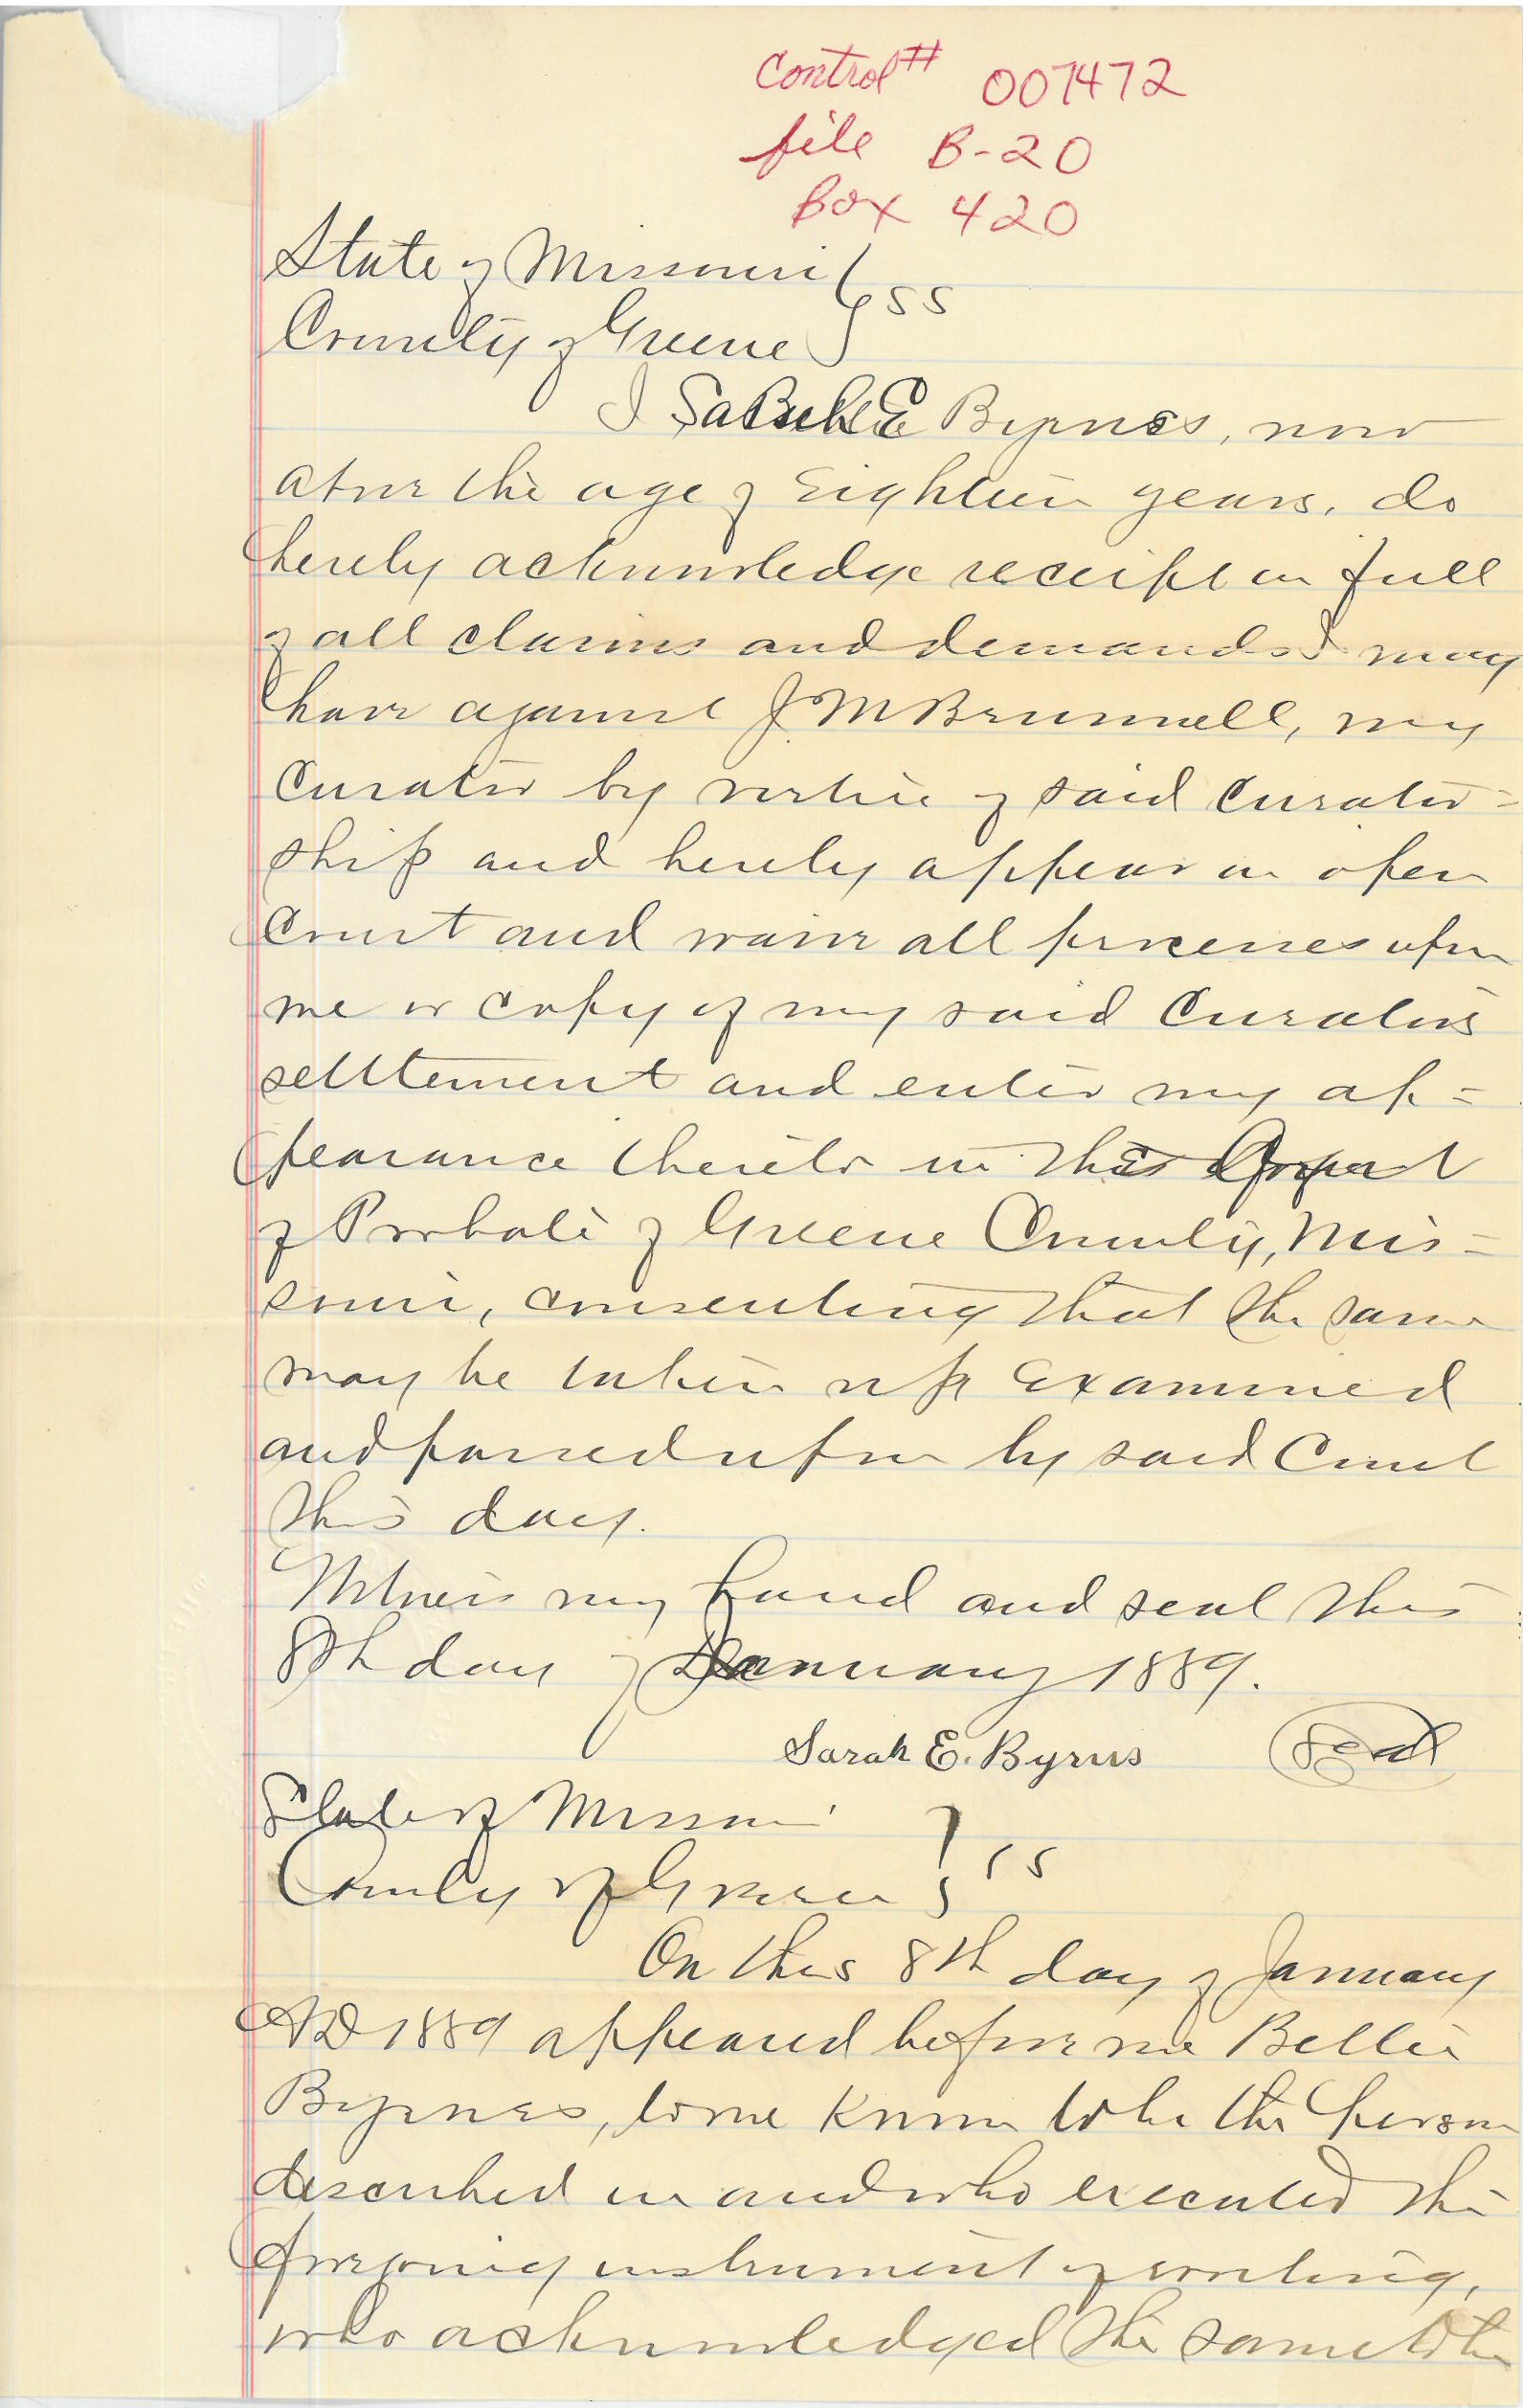 Control # 007472
file B-20
Box 420
State of Missouri } ss
County of Greene }
I E Byrnes, now
above the age of Eighteen years, do
hereby acknowledge receipt in full
of all claims and demands I may
have against J. M Brunnell, my
Curator by virtue of said Curator=
ship and hereby appear in open
Court and waive all processes upon
me or copy of my said Curators
settlement and enter my ap=
pearance thereto in this Court
of Probate of Greene County, Mis=
souri, consenting that the same
may be taken up examined
and passed upon by said Court
this day.
Witness my hand and seal this
8th day of January 1889.
Sarah E. Byrns Seal
State of Missouri } ss
County of Greene }
On this 8th day of January
AD 1889 appeared before me Belle
Byrnes, to me known to be the person
described in and who executed the
foregoing instrument of writing,
who acknowledged the same to be